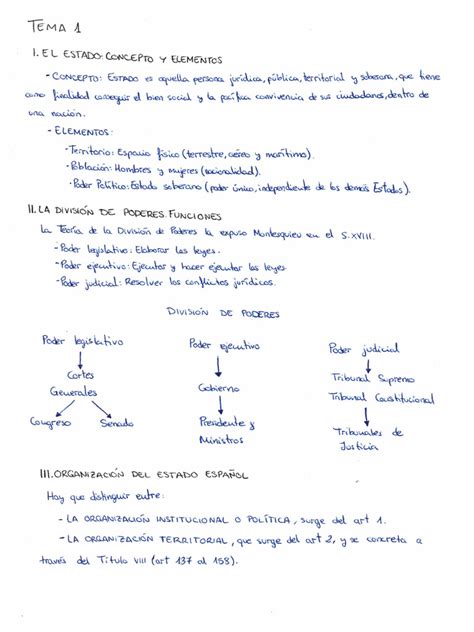 TEMA 1
I. EL ESTADO: CONCEPTO Y ELEMENTOS
- CONCEPTO: ESTADO es aquella persona jurídica, pública, territorial y soberana, que tiene
como finalidad conseguir el bien social y la pacífica convivencia de sus ciudadanos, dentro de
una nación.
- ELEMENTOS:
· Territorio: Espacio físico (terrestre, aéreo y marítimo).
· Población: Hombres y mujeres (nacionalidad).
· Poder Político: Estado soberano (poder único, independiente de los demás Estados).
II. LA DIVISIÓN DE PODERES. FUNCIONES
La Teoría de la División de Poderes la expuso Montesquieu en el S.XVIII.
- Poder legislativo: Elaborar las leyes.
- Poder ejecutivo: Ejecutar y hacer ejecutar las leyes.
- Poder judicial: Resolver los conflictos jurídicos.
DIVISIÓN DE PODERES
Poder legislativo Poder ejecutivo Poder judicial
Cortes
Generales
Gobierno
Tribunal Supremo
Tribunal Constitucional
Congreso Senado
Presidente y
Ministros
Tribunales de
Justicia
III. ORGANIZACIÓN DEL ESTADO ESPAÑOL
Hay que distinguir entre:
- LA ORGANIZACIÓN INSTITUCIONAL O POLÍTICA, surge del art 1.
- LA ORGANIZACIÓN TERRITORIAL, que surge del art 2, y se concreta a
través del Título VIII (art 137 al 158).